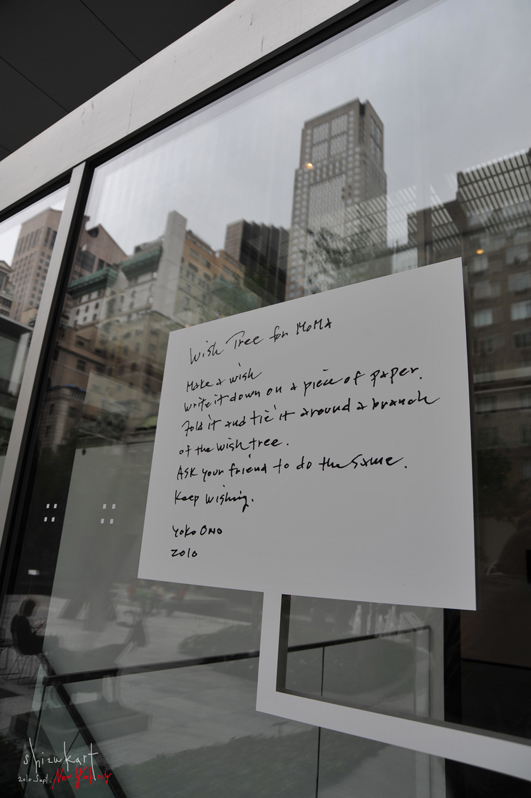 Wish Tree for MoMA
Make a wish
Write it down on a piece of paper.
Fold it and tie it around a branch
of the wish tree.
Ask your friend to do the same.
Keep wishing.
Yoko Ono
2010
shizukart
2010 Sept. New York City